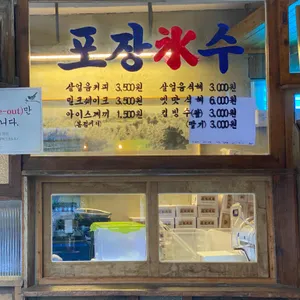 포장氷수
살얼음커피 3,500원 살얼음식혜 3,000원
밀크쉐이크 3,500원 옛맛식혜 6,000원
아이스께끼 1,500원 컵빙수(팥) 3,000원
(딸기) 3,000원
e-out)만
니다.